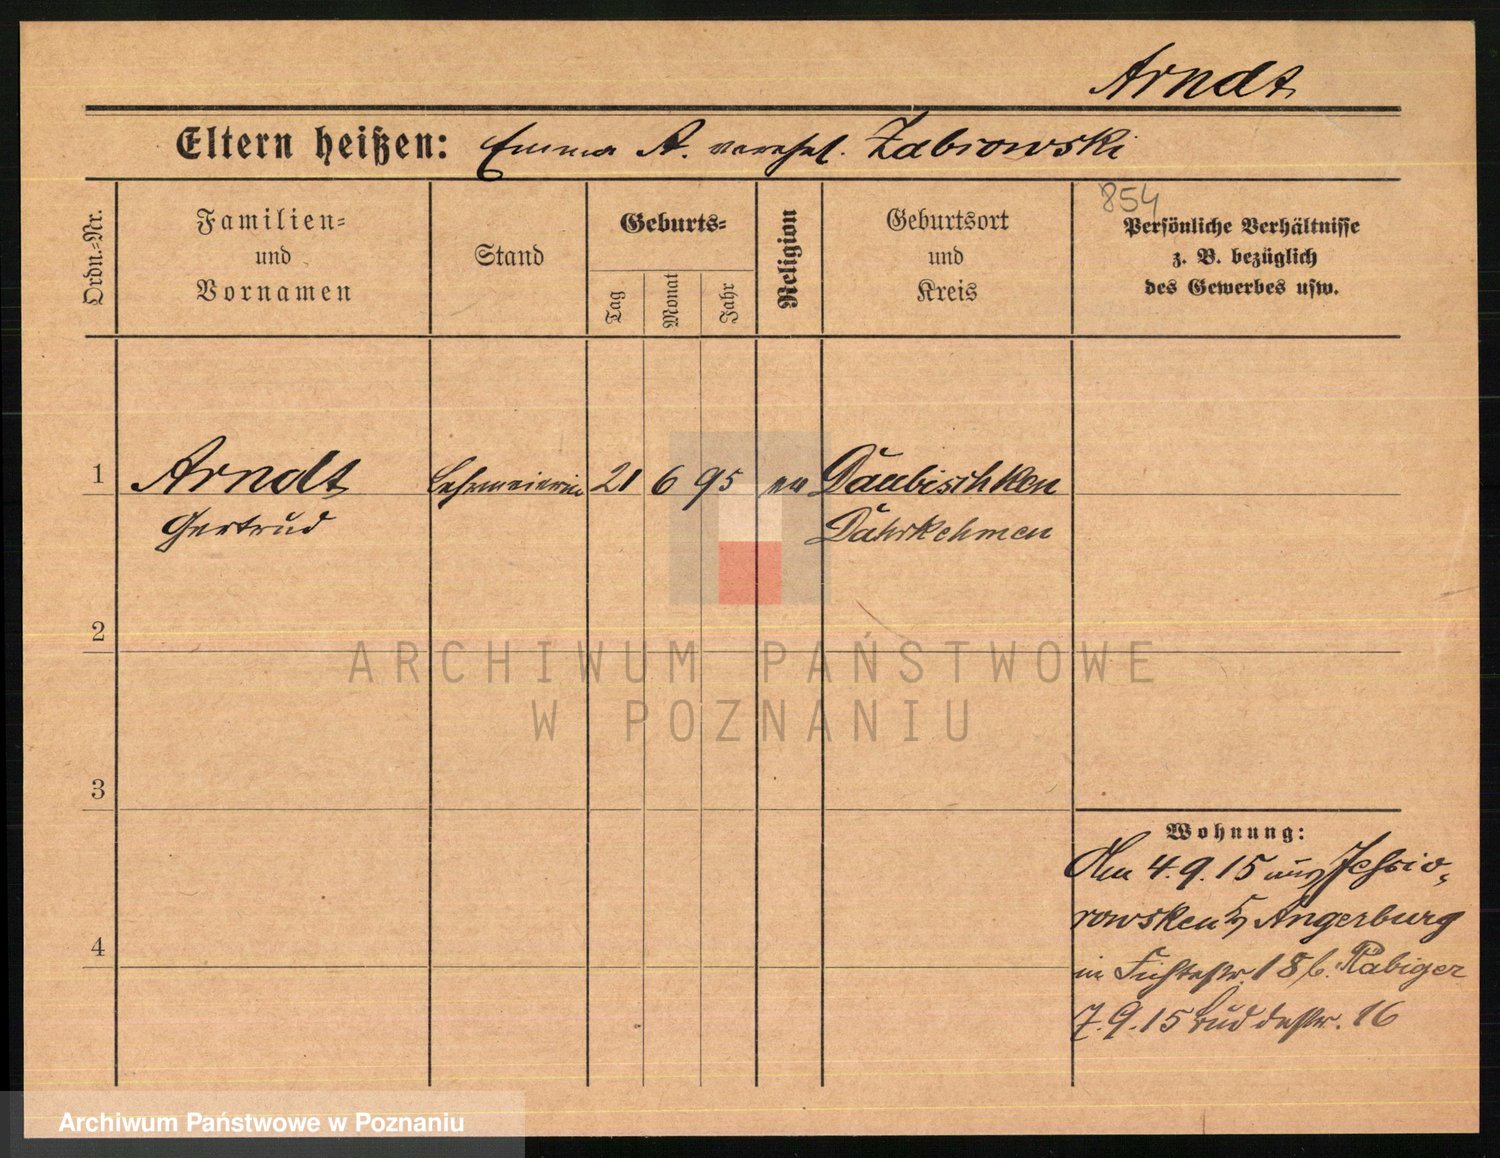 Arndt
Eltern heißen: Emma A. verehel. Zabrowski
854
Ordn.=Nr.
Familien=
und
Vornamen
Stand
Geburts=
Tag
Monat
Jahr
Religion
Geburtsort
und
Kreis
Persönliche Verhältnisse
z. B. bezüglich
des Gewerbes usw.
1 Arndt Lehrmeierin 21 6 95 ev Daubischken
Gertrud Darkehmen
2
ARCHIWUM PAŃSTWOWE
W POZNANIU
3
Wohnung:
Am 4.9.15 aus
4
rowsken Angerburg
in Fichtestr. 18 b. Räbiger
7.9.15 Buddestr. 16
Archiwum Państwowe w Poznaniu